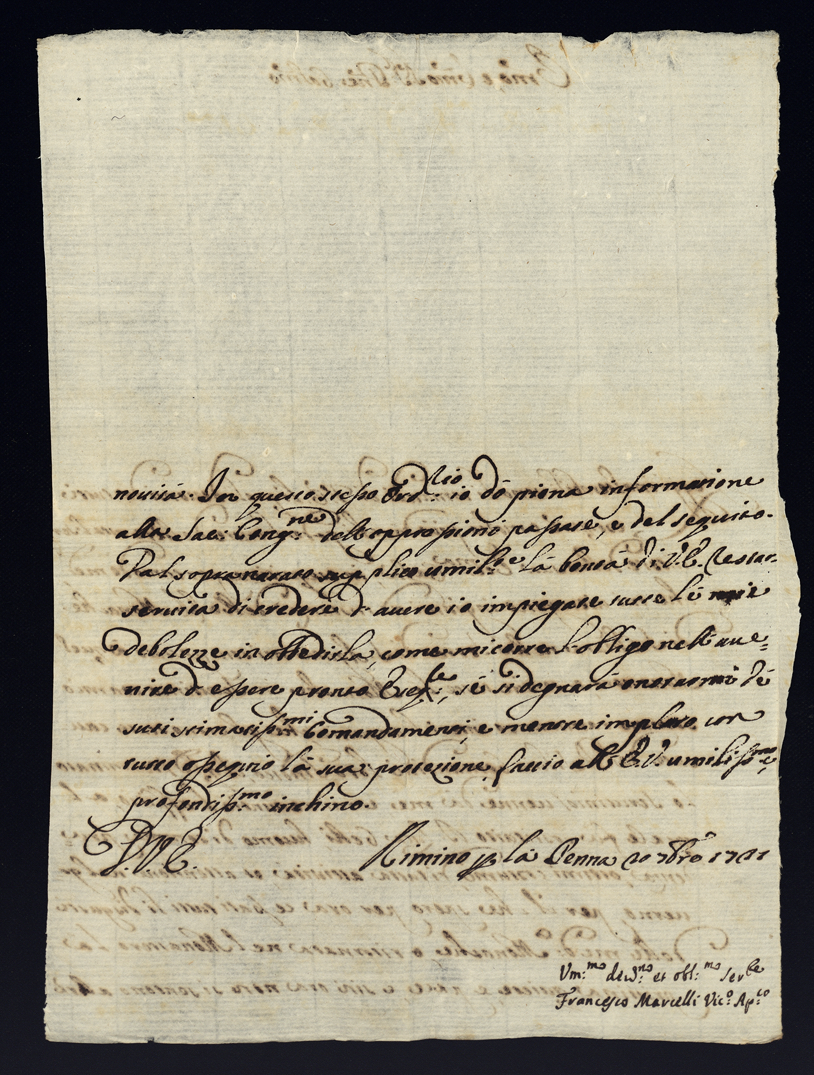 novità. Per questo stesso Ord:rio io dò piena informatione
alla Sac: Cong:ne dell'oppo passate, e del seguito.
Dal sopranarato supplico umil:te la bontà di V.E. restar
servita di credere d'avere io impiegate tutte le mie
debolezze in obbedirla, come mi corre l'obligo nell'auue=
nire d'essere pronto se si degnarà onorarmi de
suoi stimatiss:mi Comandamenti, e mentre imploro con
tutto ossequio la sua protezione, faccio all'E.V. umiliss:mo, e
profondiss:mo inchino.
D.V.E. Rimino p. la Penna 20 7bre 1721
Um:mo dev:no et obl:mo ser:re
Francesco Marcelli Vic:o Ap:co